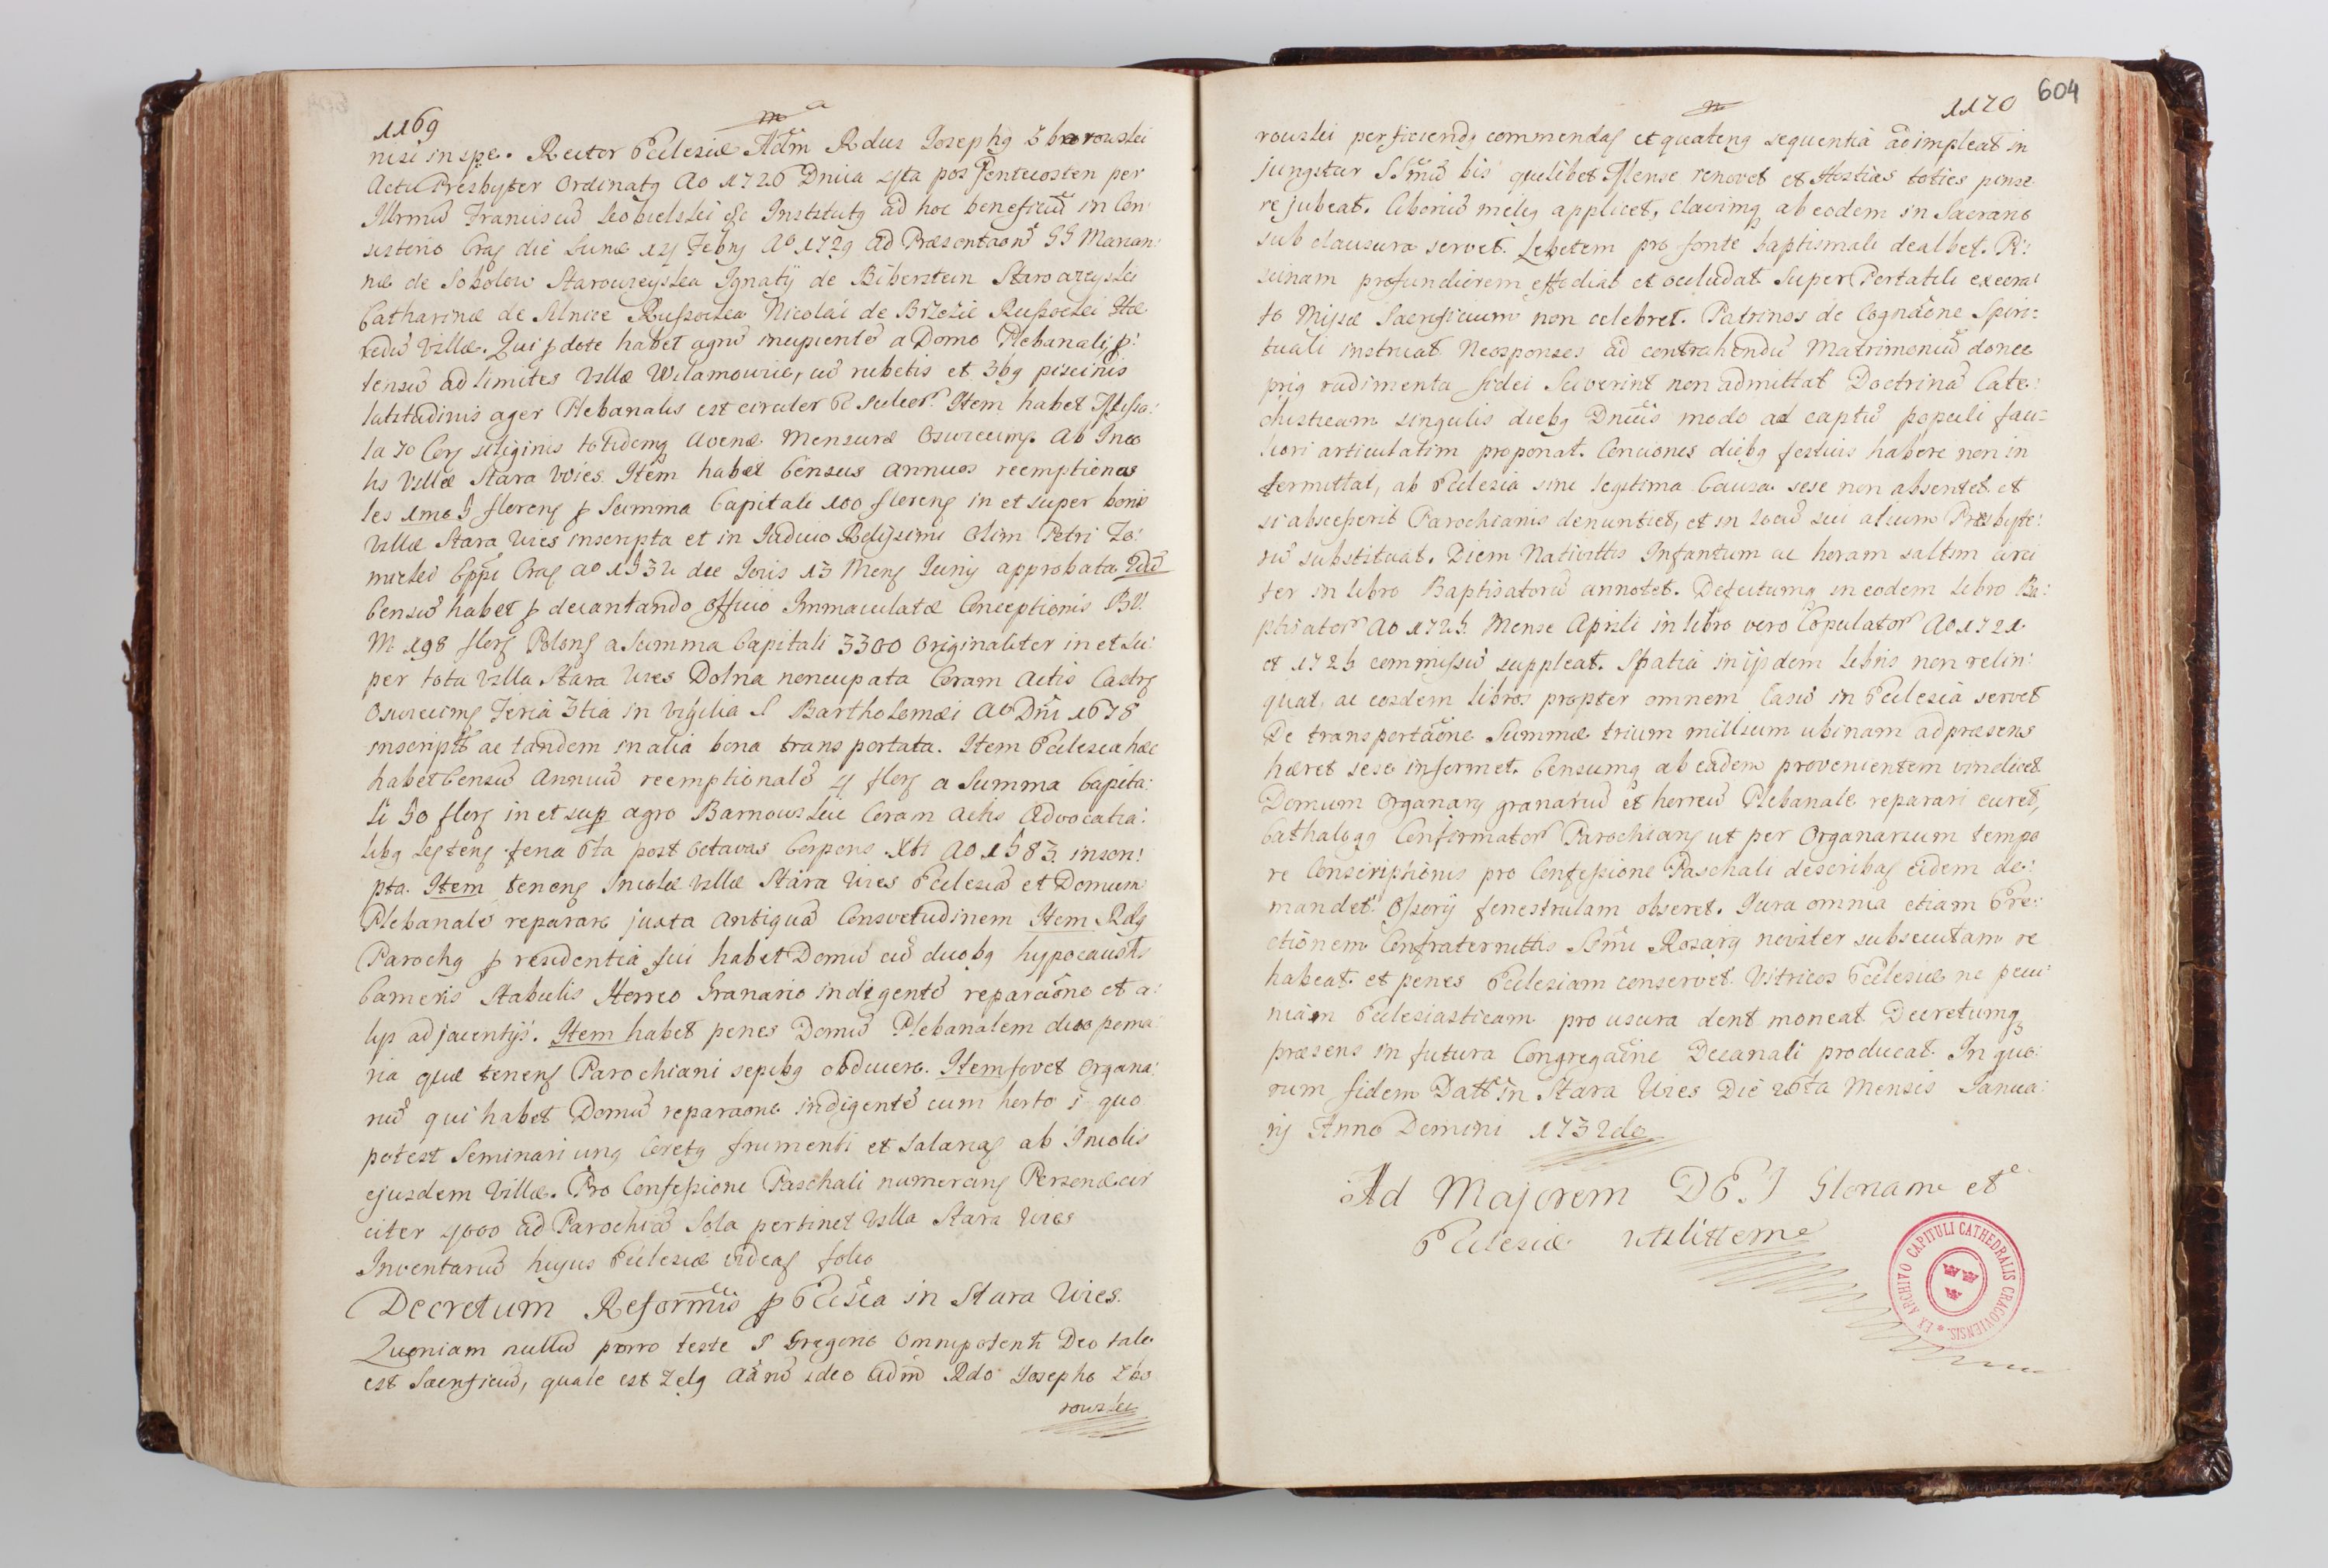 1169
nisi in spe. Rector Ecclesiæ Adm Rdus Josephg Zborowski
Actu Presbyter Ordinatg Ao 1726 Dnica 4ta post Pentecosten per
Illrmũ Franciscũ Kobielski &c Institutg ad hoc beneficiũ in Con:
sistorio Crac die Lunæ 14 Febrij Ao 1729 ad Præsentaonẽ GG Marian:
næ de Sokolow Starowieyska Ignatij de Biberstein Starowieyski
Catharinæ de Silnice Russocka Nicolai de Brzezie Russocki Hæ
redũ Villæ. Qui p dote habet agrũ incipientẽ a Domo Plebanali p:
tensũ ad limites Villæ Wilamowice, cũ rubetis et 3bg piscinis
latitudinis ager Plebanalis est circiter sulcor. Item habet Missa:
la 70 Corg siliginis totidemq avenæ Mensuræ Osviecimg. ab Inco
lis Villæ Stara Wies. Item habet Census annuos reemptiona
les 1mo 5 floreng p Summa Capitali 100 floreng in et super bonis
Villæ Stara Wies inscripta et in Judicio Rdissimi olim Petri To:
micki Eppi Crac ao 1532 die Jovis 13 Mens Junij approbata 2dũ
Censũ habet p decantando officio Immaculatæ Conceptionis BV.
M. 198 flor Polong a Summa Capitali 3300 Originaliter in et su:
per tota Villa Stara Wies Dolna noncupata Coram Actis Castrg
Osviecimg Feria 3tia in Vigilia S Bartholomæi Ao Dni 1678
inscript ac tandem in alia bona transportata. Item Ecclesia hæc
habet Censũ Annuũ reemptionalẽ 4 flor a Summa Capita:
li 50 flor in et sup agro Barnowskie Coram Actis Advocatia:
libg Kęteng feria 6ta post octavas Corporis Xti Ao 1583 inscri:
pta. Item teneng Incolæ Villæ Stara Wies Ecclesiã et Domum
Plebanalẽ reparare juxta antiquã Consvetudinem Item Rdg
Parochg p residentia sui habet Domũ cũ duobg hypocaustis
Cameris Stabulis Horreo Granario indigentẽ reparaone et a:
lijs adjacentijs. Item habet penes Domũ Plebanalem duo poma
ria quæ teneng Parochiani sepibg obducere. Item fovet Organa:
riũ qui habet Domũ reparaone indigentẽ cum horto i quo
potest Seminari ung Coretg frumenti et Salariag ab Incolis
ejusdem Villæ. Pro Confessione Paschali numerang Personæ cir
citer 4000 ad Parochiã Sola pertinet Villa Stara Wies
Inventariũ hujus Ecclesiæ videag folio
Decretum Reformis p Ecclsia in Stara Wies.
Quoniam nullũ porro teste S Gregorio Omnipotenti Deo tale
est Sacrificiũ, quale est Zelg aarũ ideo Adm Rdo Josepho Zbo
rowski
604
1170
rowski perficiendg commendag et quateng sequentia adimpleat in
jungitur SSmũ bis quolibet Mense renovet et Hostias toties pinse
re jubeat. Ciboriũ melig applicet, clavimq ab eodem in Sacrario
sub clausura servet. Lebetem pro fonte baptismali dealbet. Pi:
scinam profundiorem effodiat et occludat Super Portatili execra:
to Missæ Sacrificium non celebret. Patrinos de Cognaone Spiri:
tuali instruat Neosponsos ad contrahendũ Matrimoniũ donec
prig rudimenta fidei sciverint non admittat Doctrinã Cate:
chisticam singulis diebg Dnicis modo ad captũ populi faci:
liori articulatim proponat. Conciones diebg festivis habere non in
termittat, ab Ecclesia sine legitima Causa sese non absentet et
si abscesserit Parochianis denuntiet, et in locũ sui alium Presbyte:
rũ substituat. Diem Nativittis Infantum ac horam saltim circi
ter in libro Baptisatorũ annotet. Defectumq in eodem libro Ba:
ptisator Ao 1725 Mense Aprili in libro vero Copulator Ao 1721
et 1726 commissũ suppleat. Spatia in ijsdem libris non relin:
quat, ac eosdem libros propter omnem Casũ in Ecclesia servet
De transportaone Summæ trium millium ubinam ad præsens
hæret sese informet. Censumq ab eadem provenientem vindicet
Domum Organarg granariũ et horreũ Plebanale reparari curet,
Cathalogg Confirmator Parochiang ut per Organarium tempo
re Conscriptionis pro Confessione Paschali describag eidem de:
mandet. Ossorij fenestrulam obseret. Jura omnia etiam Ere:
ctionem Confraternittis Ssmi Rosarij noviter subsecutam re
habeat et penes Ecclesiam conservet. Vitricos Ecclesiæ ne pecu:
niam Ecclesiasticam pro usura dent moneat Decretumq
præsens in futura Congregaone Decanali producat. In quo:
rum fidem Datt in Stara Wies Die 26ta Mensis Janua:
rij Anno Domini 1732do
Ad Majorem DEI Gloriam et
Ecclesiæ utilittem
EX ARCHIVO CAPITULI CATHEDRALIS CRACOVIENSIS